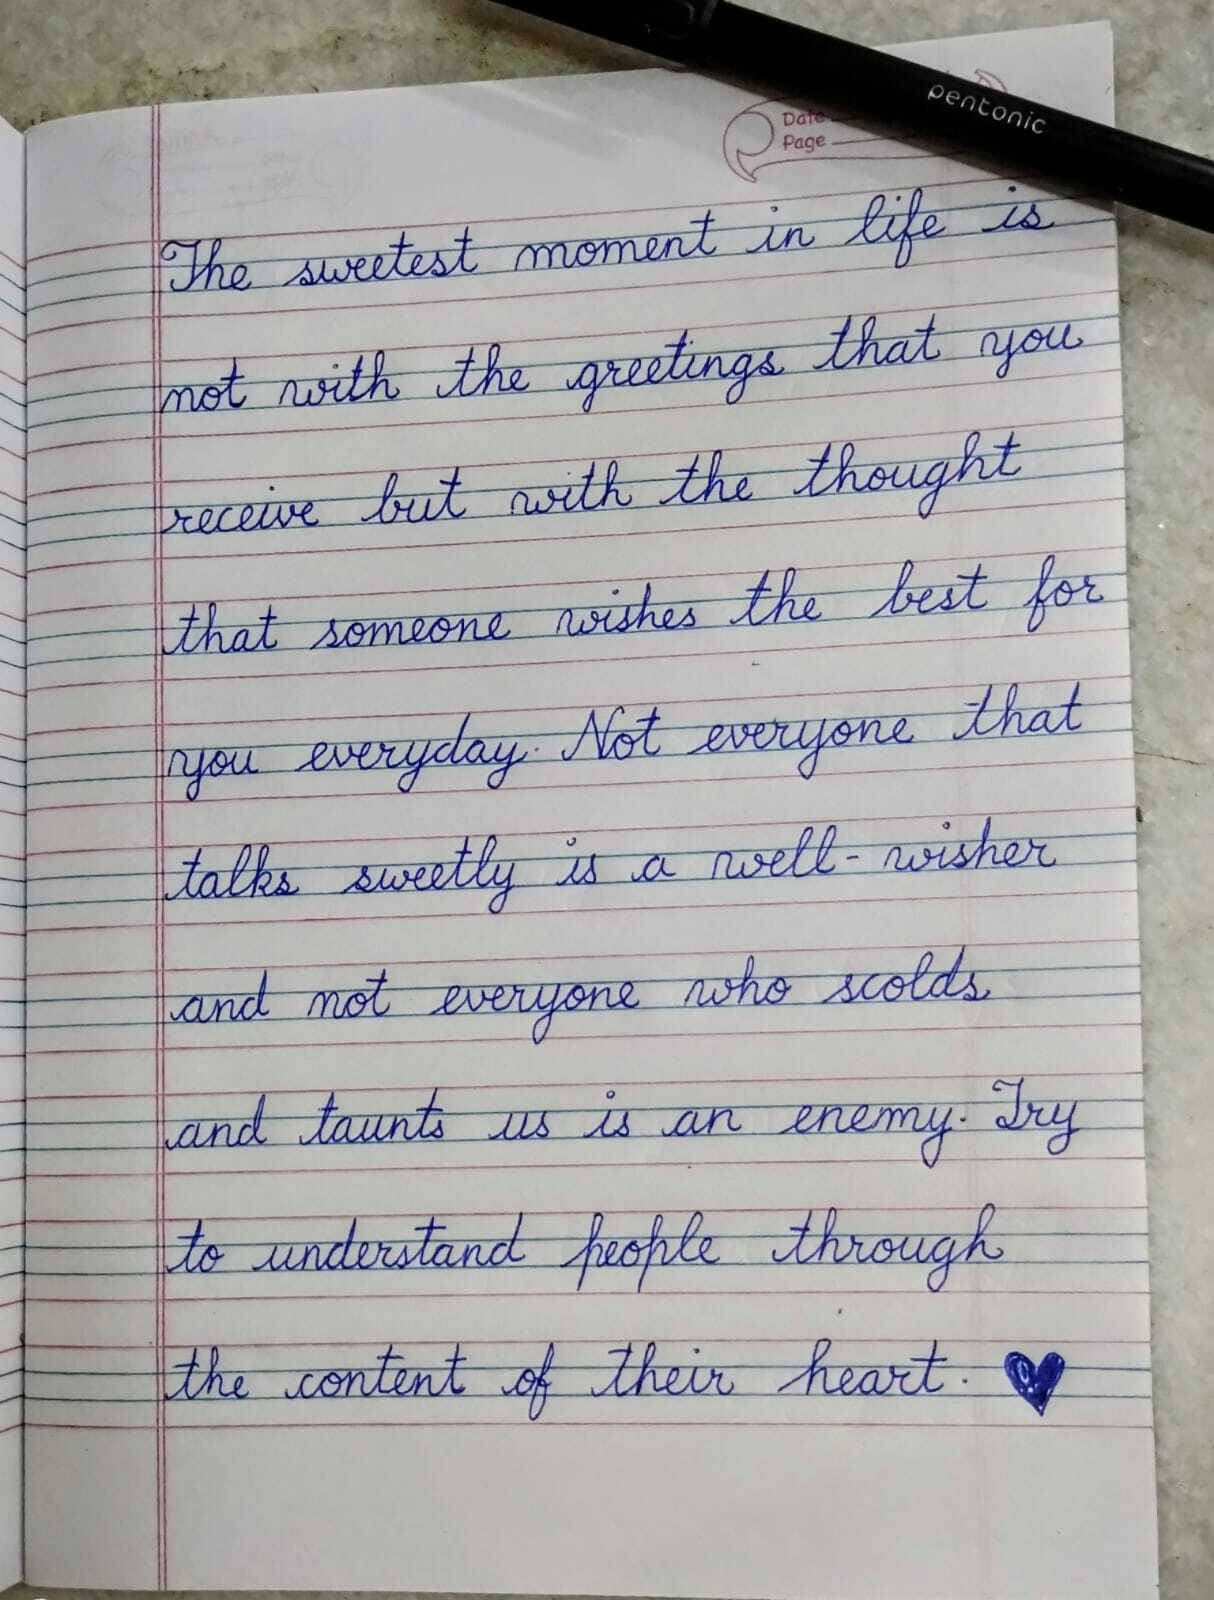 pentonic
Date
Page
The sweetest moment in life is
not with the greetings that you
receive but with the thought
that someone wishes the best for
you everyday. Not everyone that
talks sweetly is a well-wisher
and not everyone who scolds
and taunts us is an enemy. Try
to understand people through
the content of their heart.